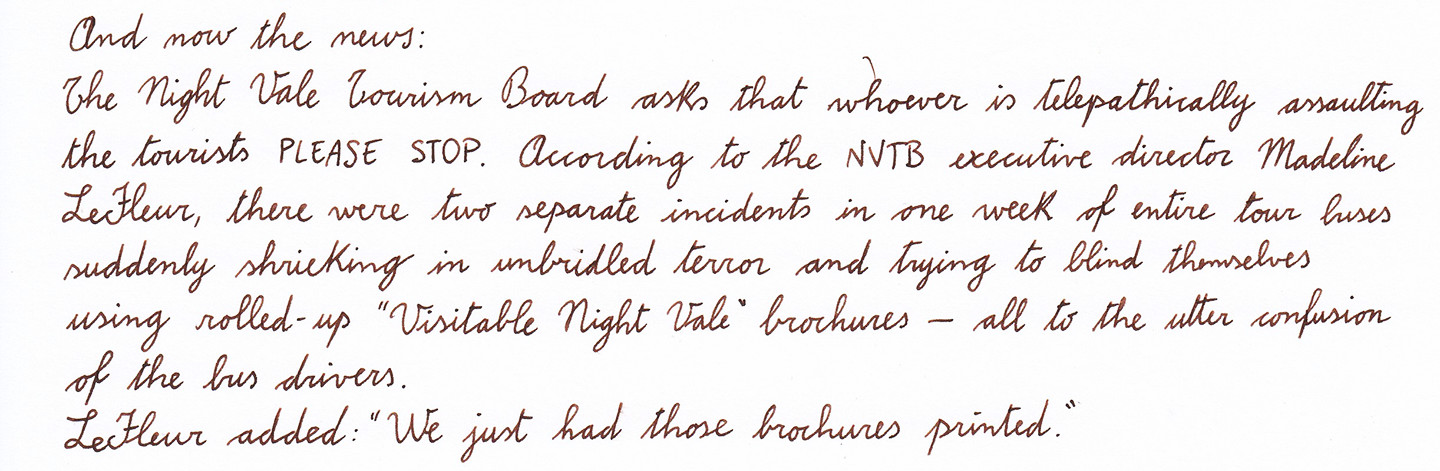 And now the news:
The Night Vale Tourism Board asks that whoever is telepathically assaulting
the tourists PLEASE STOP. According to the NVTB executive director Madeline
LeFleur, there were two separate incidents in one week of entire tour buses
suddenly shrieking in unbridled terror and trying to blind themselves
using rolled-up "Visitable Night Vale" brochures – all to the utter confusion
of the bus drivers.
LeFleur added: "We just had those brochures printed."